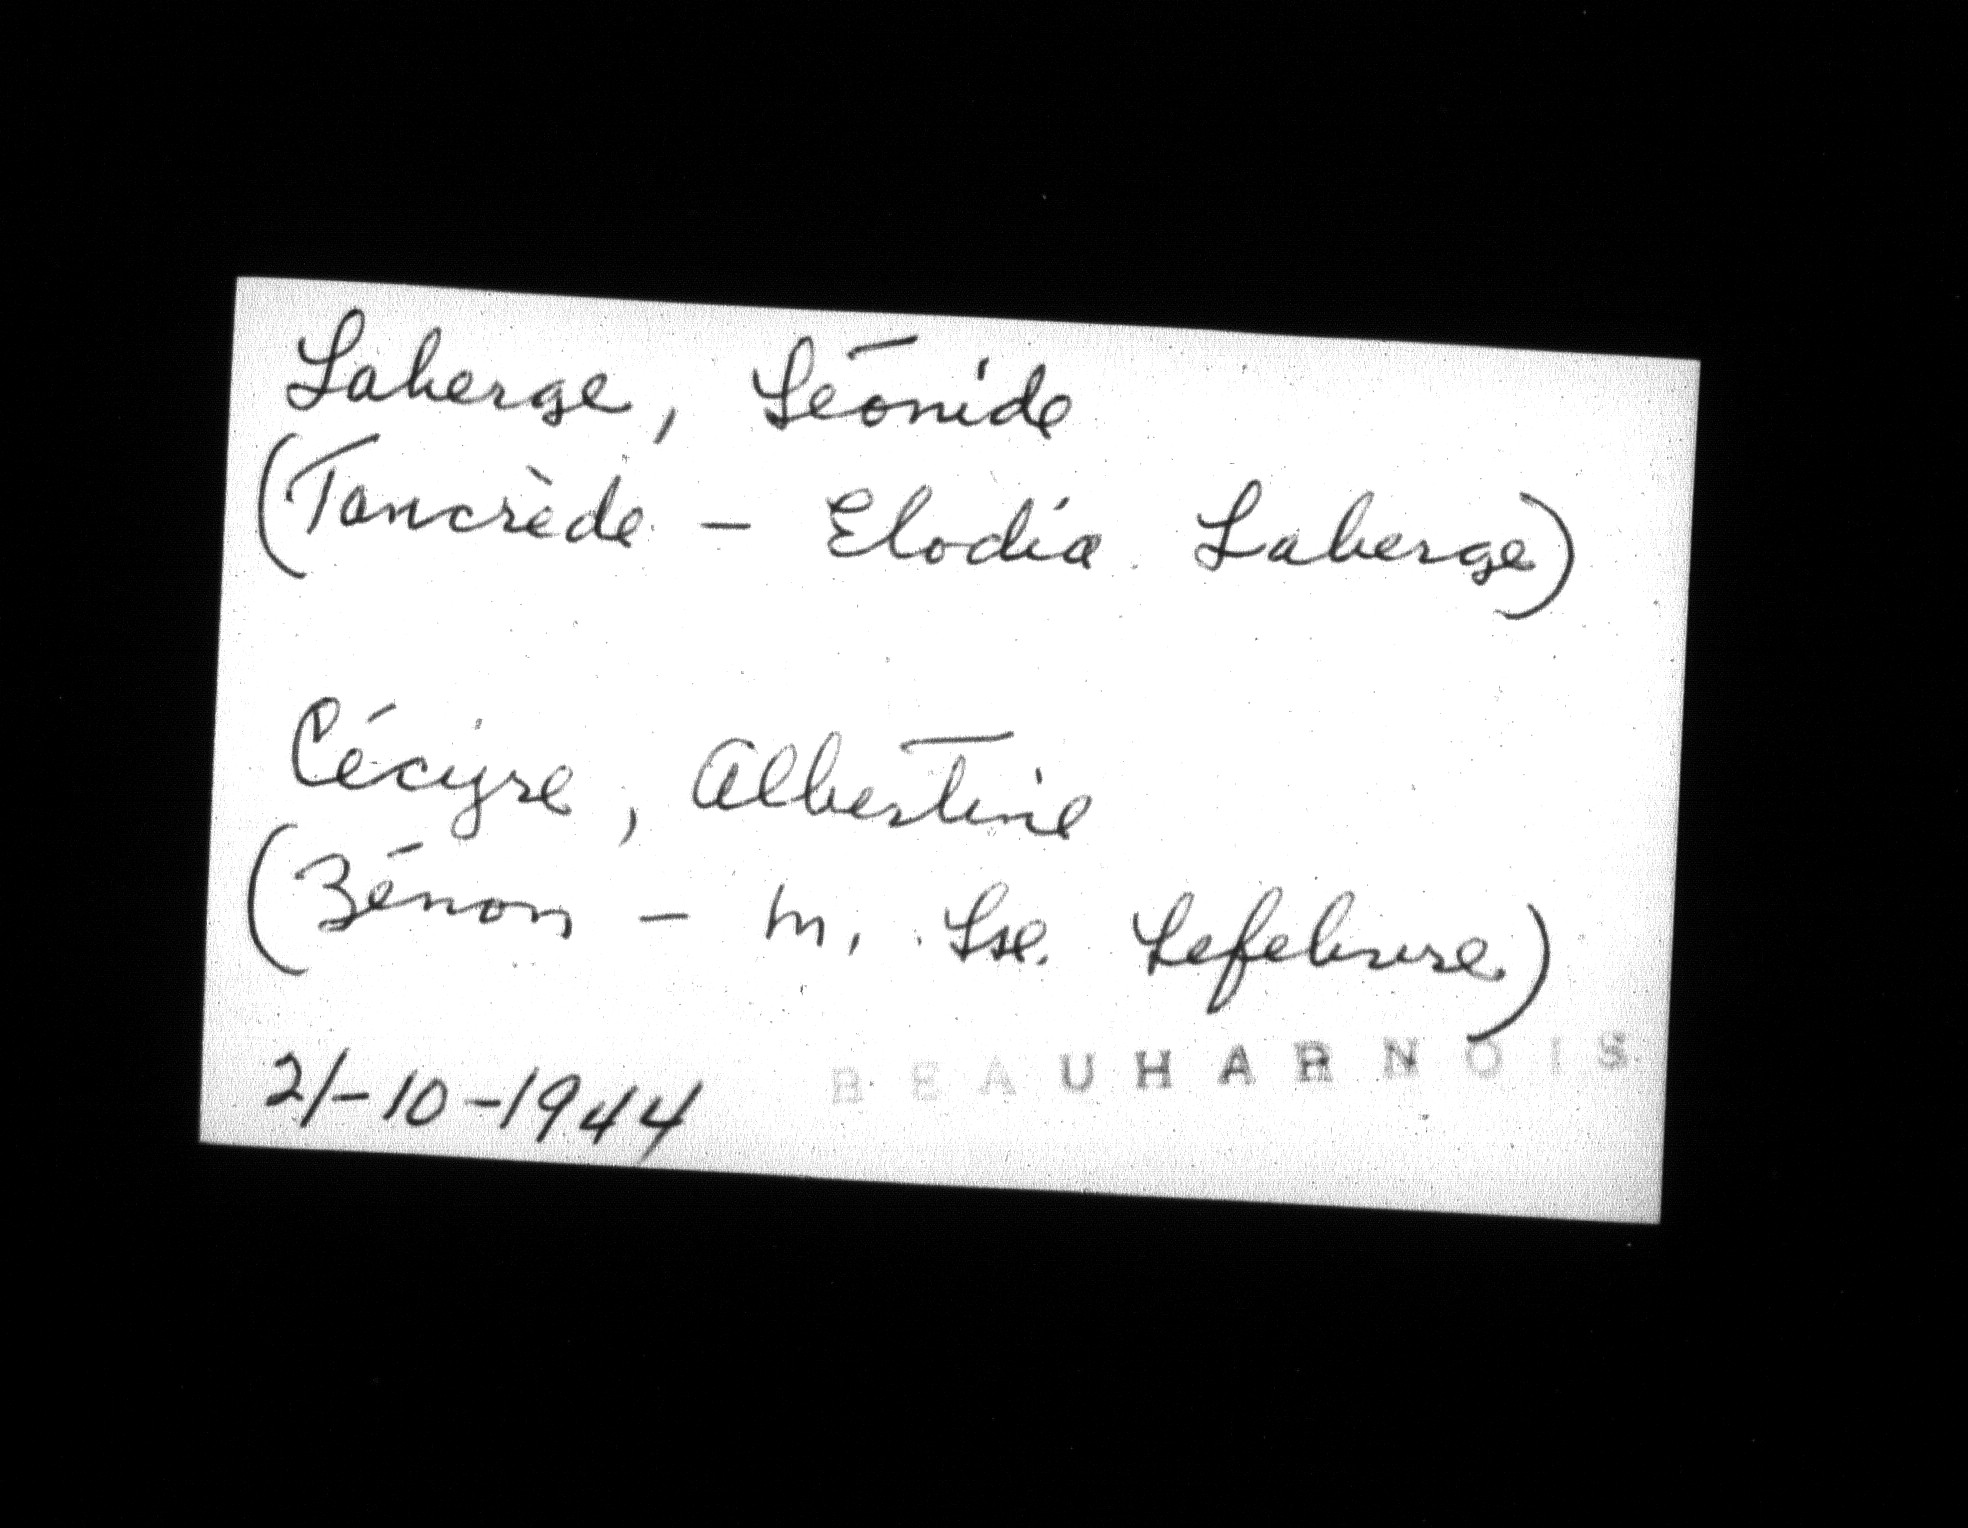 Laberge, Léonide
(Tancrède - Elodia Laberge)
Cécyre, Albertine
(Zénon - M. Lse. Lefebvre)
21-10-1944 BEAUHARNOIS